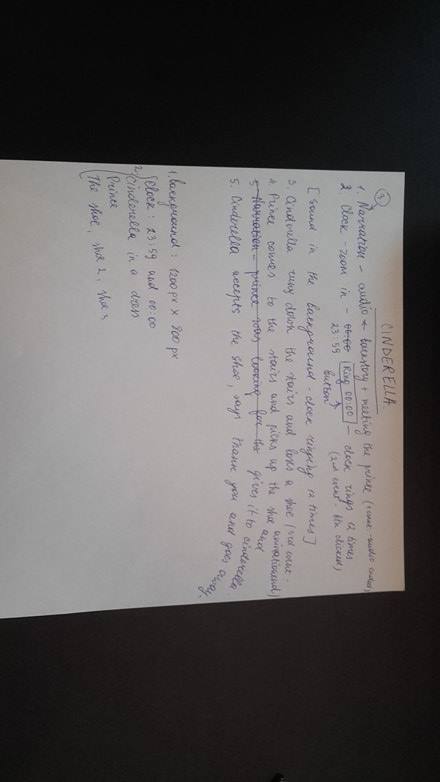 CINDERELLA
1. Narration - audio ← backstory + meeting the prince (1 event - audio ended)
2. Clock - zoom in - 00:00 Ring 00:00 - clock rings 12 times
23:59 button (2nd event - btn clicked)
[Sound in the background - clock ringing 12 times]
3. Cinderella runs down the stairs and loses a shoe (3rd event -
animationend)
4. Prince comes to the stairs and picks up the shoe and
5. Narration - prince was looking for the gives it to cinderella.
5. Cinderella accepts the shoe, says thank you and goes away.
1. background: 1200 px × 800 px
2. Clock: 23:59 and 00:00
Cinderella in a dress
Prince
The shoe, shoe 2, shoe 3